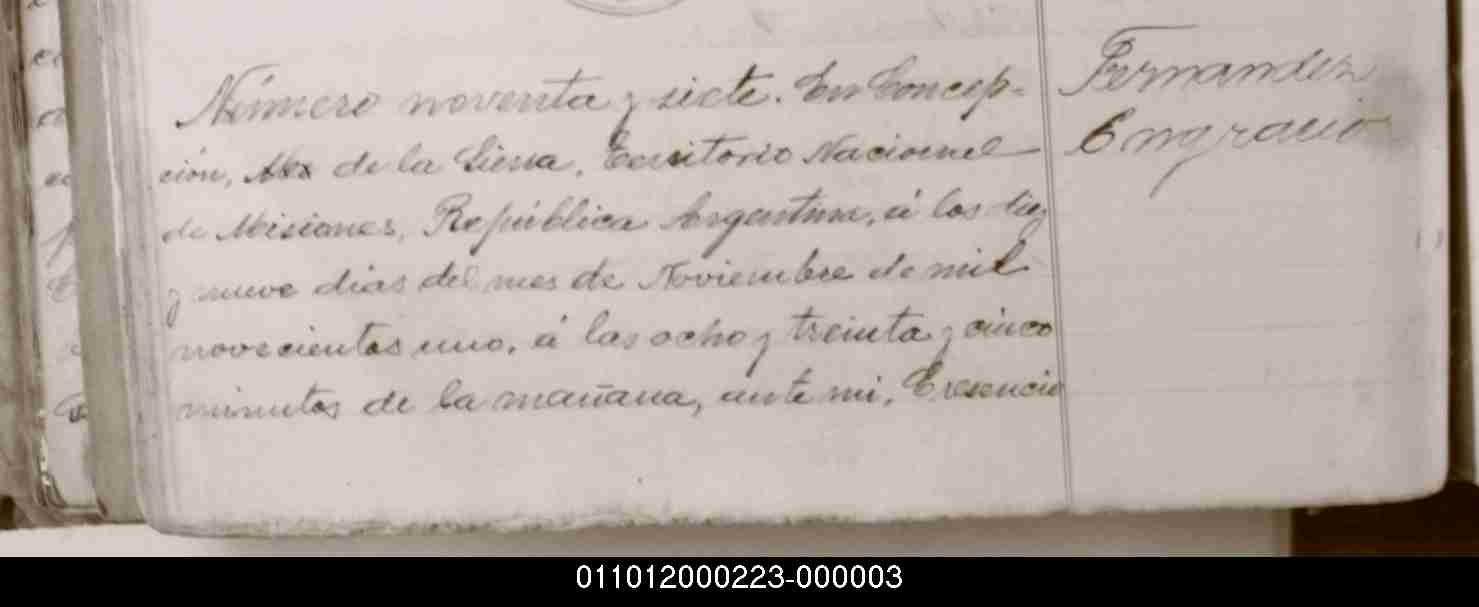 Número noventa y siete. En Concep-
ción, de la Sierra, Territorio Nacional
de Misiones, República Argentina, á los diez
y nueve dias del mes de Noviembre de mil
novecientos uno, á las ocho y treinta y cinco
minutos de la mañana, ante mi,
Fernandez
Engracio
011012000223-000003